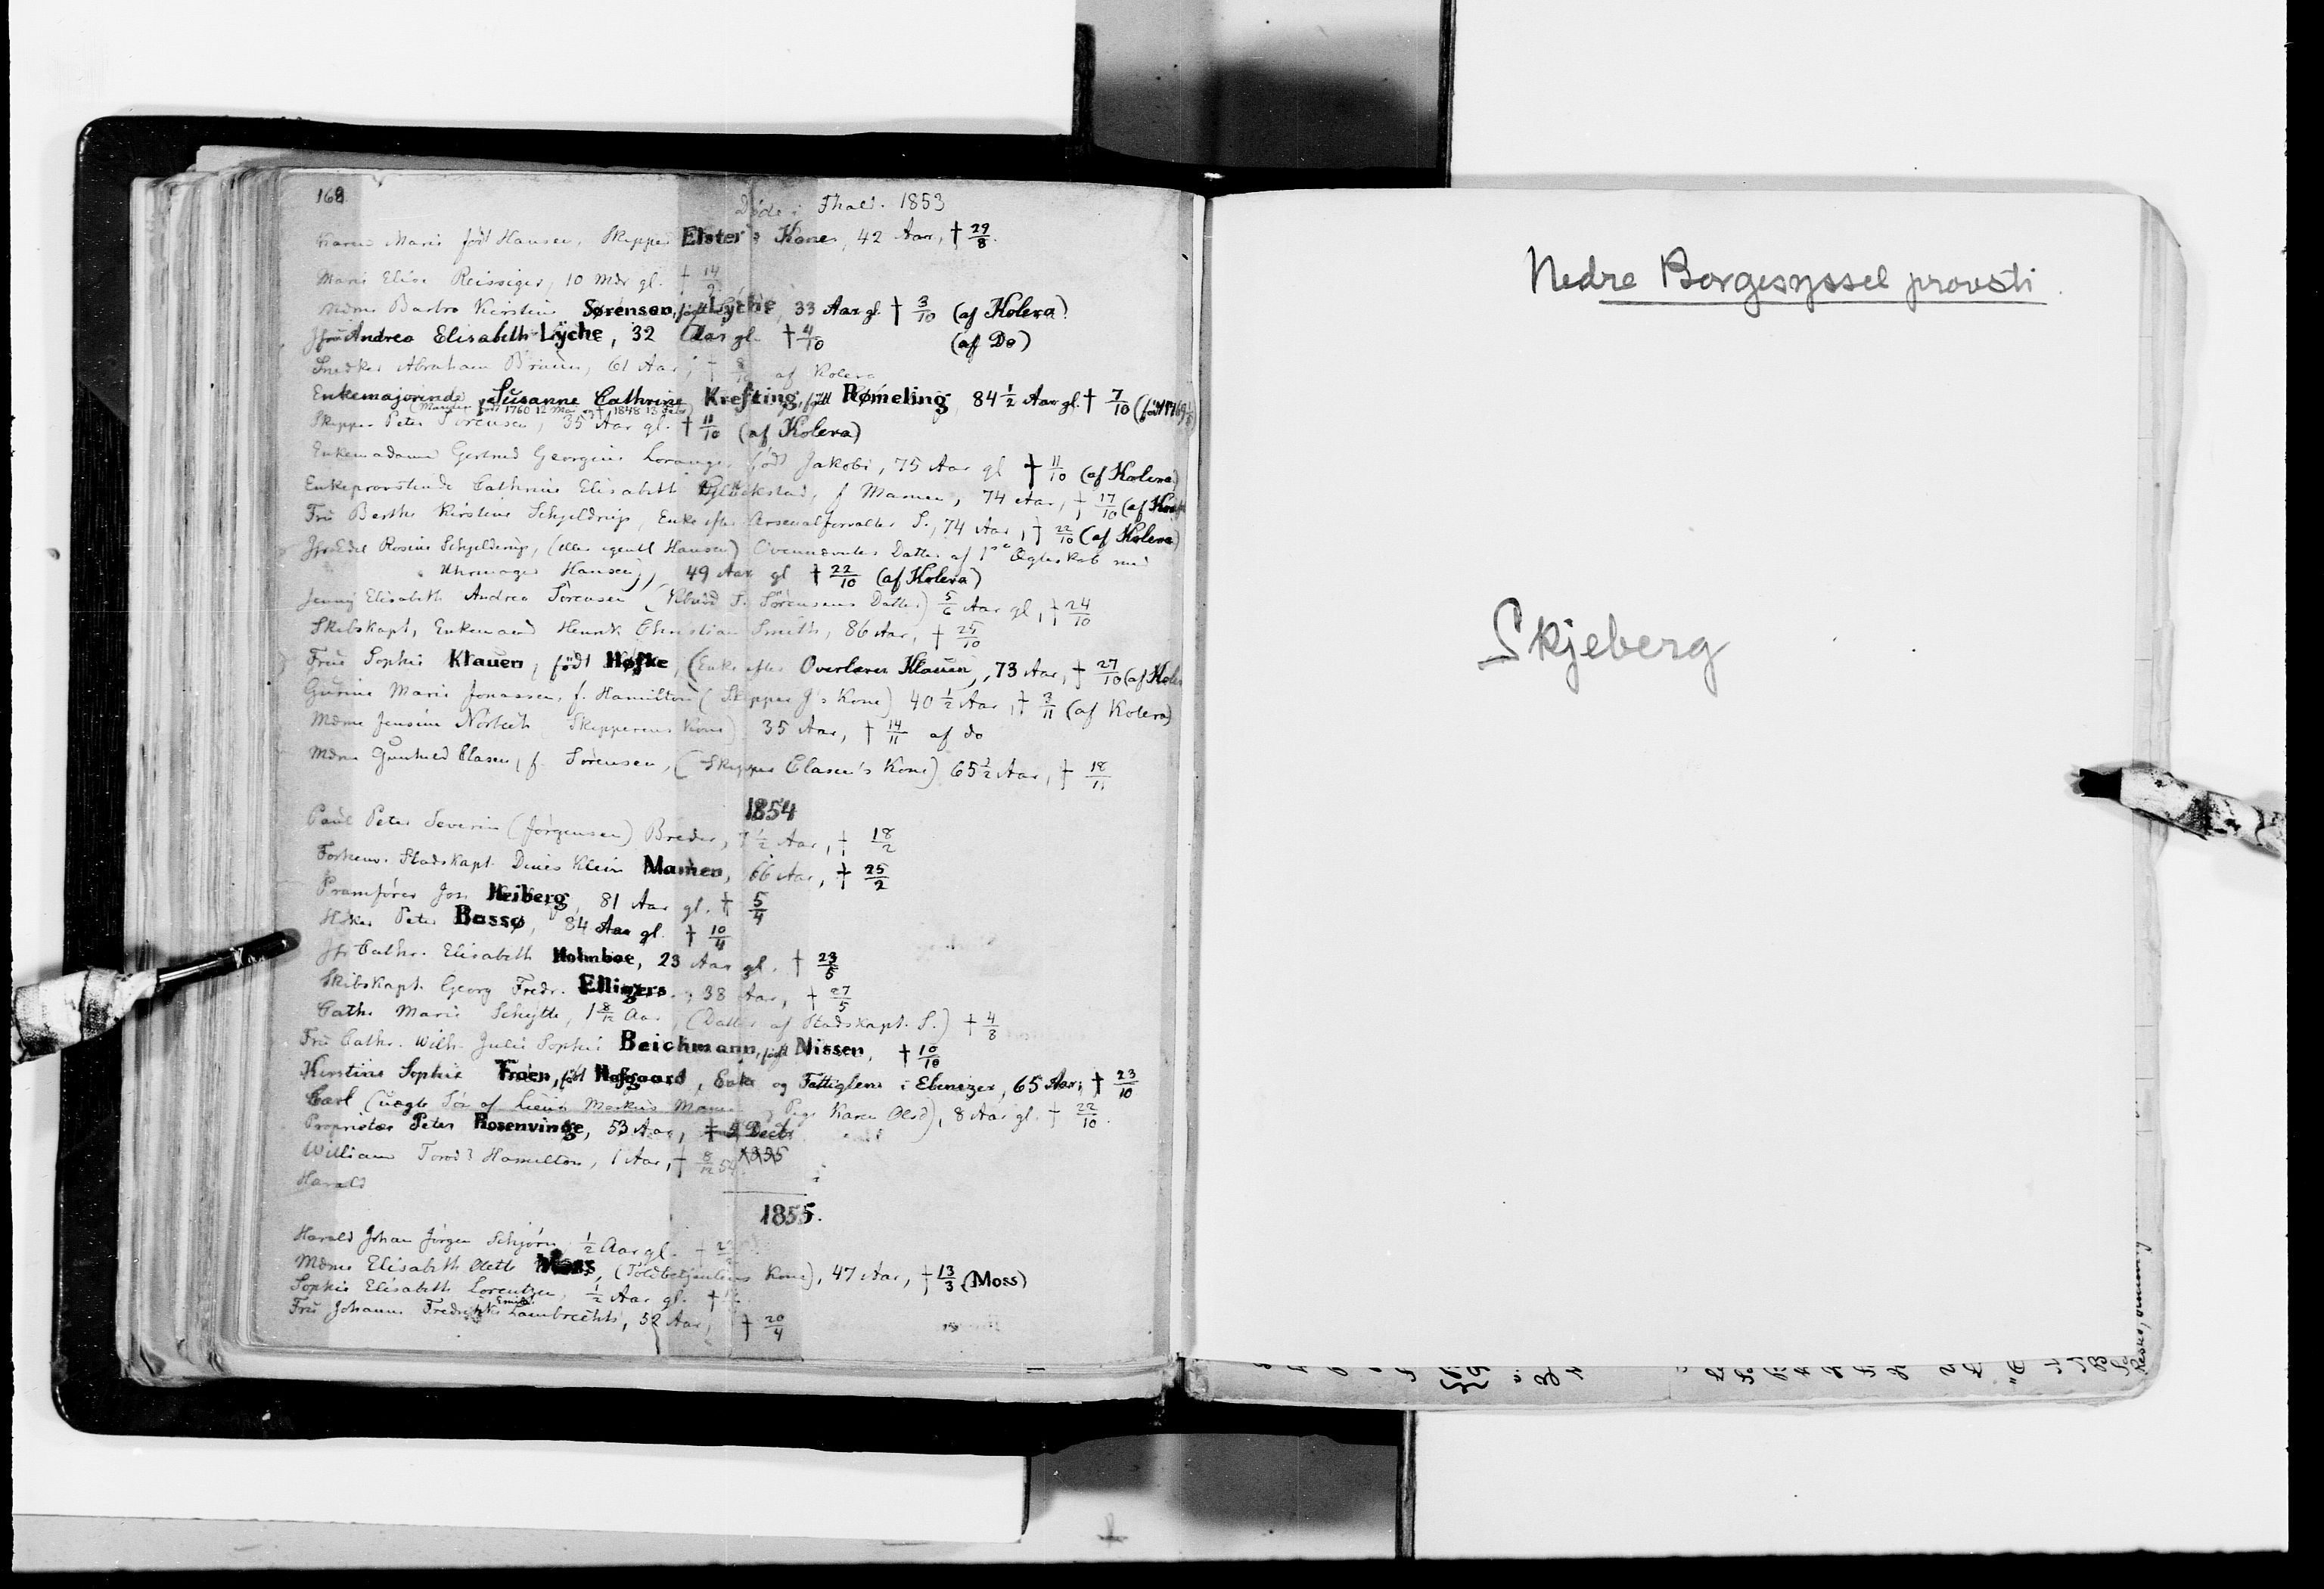 168
Døde i Fhald. 1853
Karen Marie født Hansen, Skipper Elster's Kone, 42 Aar, † 29/8.
Marie Elise Reissiger, 10 Mdr gl. † 14/9
Mdme Barbro Kirstine Sørensen, født Lyche, 33 Aar gl. † 3/10 (af Kolera)
Jfru Andrea Elisabeth Lyche, 32 Aar gl. † 4/10 (af Do)
Snedker Abraham 61 Aar, † 8/10 af Kolera
Enkemajorinde Susanne Cathrine Krefting, født Rømeling, 84 1/2 Aar gl. † 7/10 (født 1769
(Manden født 1760 12 Mar og † 1848 13 Febr)
Skipper Peter Sørensen, 35 Aar gl. † 11/10 (af Kolera)
Enkemadame Gertrud Georgine Lorange, født Jakobi, 75 Aar gl † 11/10 (af Kolera)
Enkeprovstinde Cathrine Elisabeth Glückstad, f Mamen, 74 Aar, † 17/10 (af
Fru Berthe Kirstine Schjeldrup, Enke efter Arsenalforvalter S., 74 Aar, † 22/10 (af Kolera)
Jfr Edel Rosine Schjelderup, (eller egentl Hansen) Ovennævntes Datter af 1ste Ægteskab med
Uhrmager Hansen, 49 Aar gl † 22/10 (af Kolera)
Jenny Elisabeth Andrea Sørensen ( Sörensens Datter) 5/6 Aar gl, † 24/10
Skibskapt, Enkemand Henrik Christian Smith, 86 Aar, † 25/10
Frue Sophie Klauen, født Høfke, (Enke efter Overlærer Klauen, 73 Aar, † 27/10 (af
Gurine Marie Jonassen, f. Hamilton (Skipper J's Kone) 40 1/2 Aar, † 3/11 (af Kolera)
Mdme Jensine Nörbech (Skipperens Kone) 35 Aar, † 14/11 af do
Mdme Gunhild Clasen, f. Sørensen, (Skipper Clasen's Kone) 65 1/2 Aar, † 18/11
1854
Paul Peter Severin (Jørgensen) Breder, 7 1/2 Aar, † 18/2
Forhenv. Stadskapt. Dines Klein Mamen, 66 Aar, † 25/2
Pramfører Jon Heiberg, 81 Aar gl. † 5/4
Peter Bassø, 84 Aar gl. † 10/4
Jfr Cathr. Elisabeth Holmboe, 23 Aar gl. † 23/5
Skibskapt. Georg Fredr. Ellingers, 38 Aar, † 27/5
Cathr Marie Schytte, 1 8/12 Aar, (Datter af Stadskapt. S.) † 4/8
Fru Cathr. Wilh. Julie Sophie Beichmann, født Nissen, † 10/10
Kirstine Sophie Traen, født Hofgaard, Enke og Fattiglem i Ebenezer, 65 Aar, † 23/10
Carl (uægte Søn af Markus Pige Karen Olsd), 8 Aar gl. † 22/10.
Proprietær Peter Rosenvinge, 53 Aar, † 5 Decbr
William Hamilton, 1 Aar, † 8/12 54. 1855
Harald
1855.
Harald Johan Jørgen Schjørn 1/2 Aar gl. †
Mdme Elisabeth Olette Moss, (Toldbetjentens Kone), 47 Aar, † 13/3 (Moss)
Sophie Elisabeth Lorentzen, 1/2 Aar gl. †
Fru Johanne Fredrikke Emilie Lambrechts, 52 Aar, † 20/4
Nedre Borgesyssel provsti.
Skjeberg